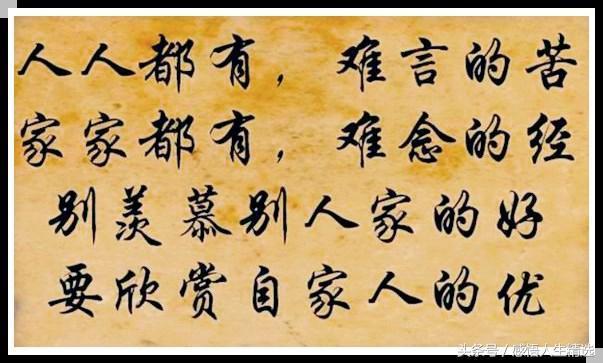 人人都有，难言的苦
家家都有，难念的经
别羡慕别人家的好
要欣赏自家人的优
头条号/感悟人生精选